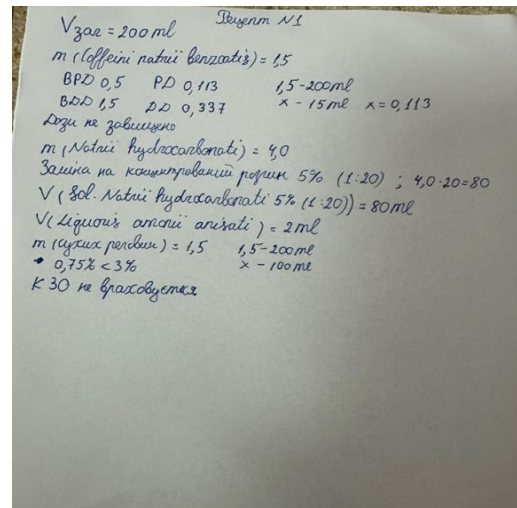 Рецепт N1
Vзаг = 200 ml
m (Coffeini natrii benzoatis) = 1,5
ВРД 0,5 РД 0,113 1,5 - 200 ml
ВДД 1,5 ДД 0,337 x - 15 ml x = 0,113
Дози не завищено
m (Natrii hydrocarbonati) = 4,0
Заміна на концентрований розчин 5% (1:20) ; 4,0·20=80
V (Sol. Natrii hydrocarbonati 5% (1:20)) = 80 ml
V (Liquoris amonii anisati) = 2 ml
m (сухих речовин) = 1,5 1,5 - 200 ml
0,75% < 3% x - 100 ml
КЗО не враховується